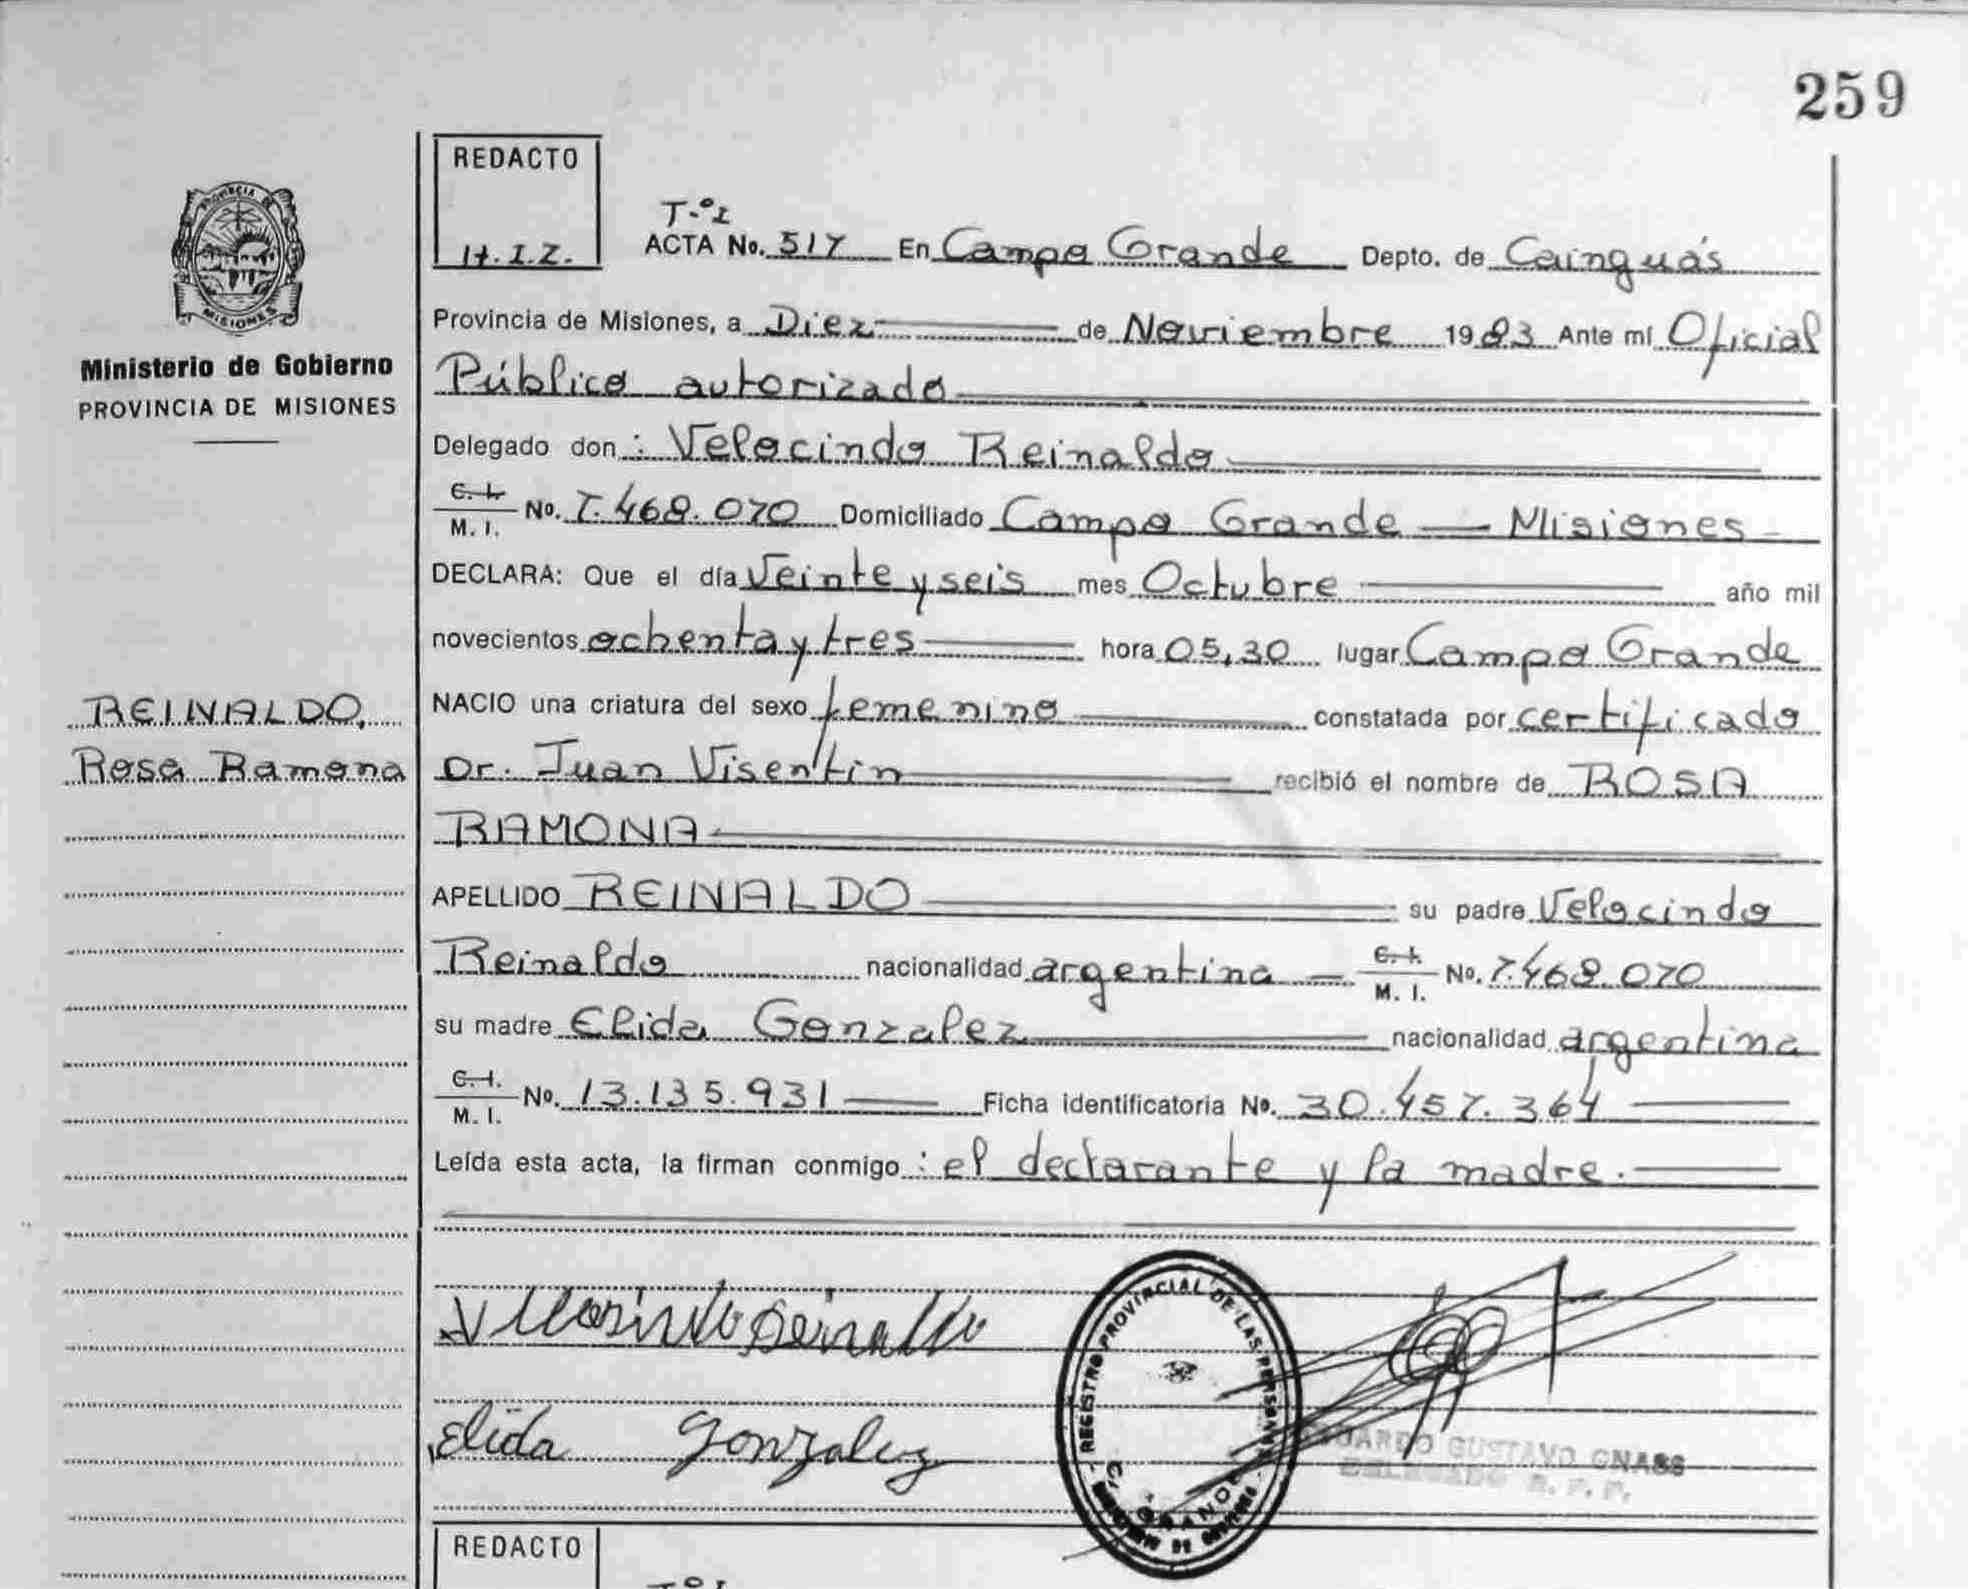 259
REDACTO
H.I.Z.
PROVINCIA DE
MISIONES
Ministerio de Gobierno
PROVINCIA DE MISIONES
T-º1
ACTA No. 517 En Campo Grande Depto. de Cainguás
Provincia de Misiones, a Diez de Noviembre 1983 Ante mí Oficial
Público autorizado
Delegado don : Velocindo Reinaldo
C. I. M. I. No. 7.468.070 Domiciliado Campo Grande — Misiones
DECLARA: Que el día Veinte y seis mes Octubre año mil
novecientos ochenta y tres hora 05,30 lugar Campo Grande
REINALDO,
Rosa Ramona
NACIO una criatura del sexo femenino constatada por certificado
Dr. Juan Visentin recibió el nombre de ROSA
RAMONA
APELLIDO REINALDO su padre Velocindo
Reinaldo nacionalidad argentina — C. I. M. I. No. 7.468.070
su madre Elida Gonzalez nacionalidad argentina
C. I. M. I. No. 13.135.931 Ficha identificatoria No. 30.457.364
Leída esta acta, la firman conmigo : el declarante y la madre.
Elida Gonzalez
REGISTRO PROVINCIAL DE LAS PERSONAS
C. GRANDE
GUSTAVO GNASS
DELEGADO R. P. P.
REDACTO
T-º1